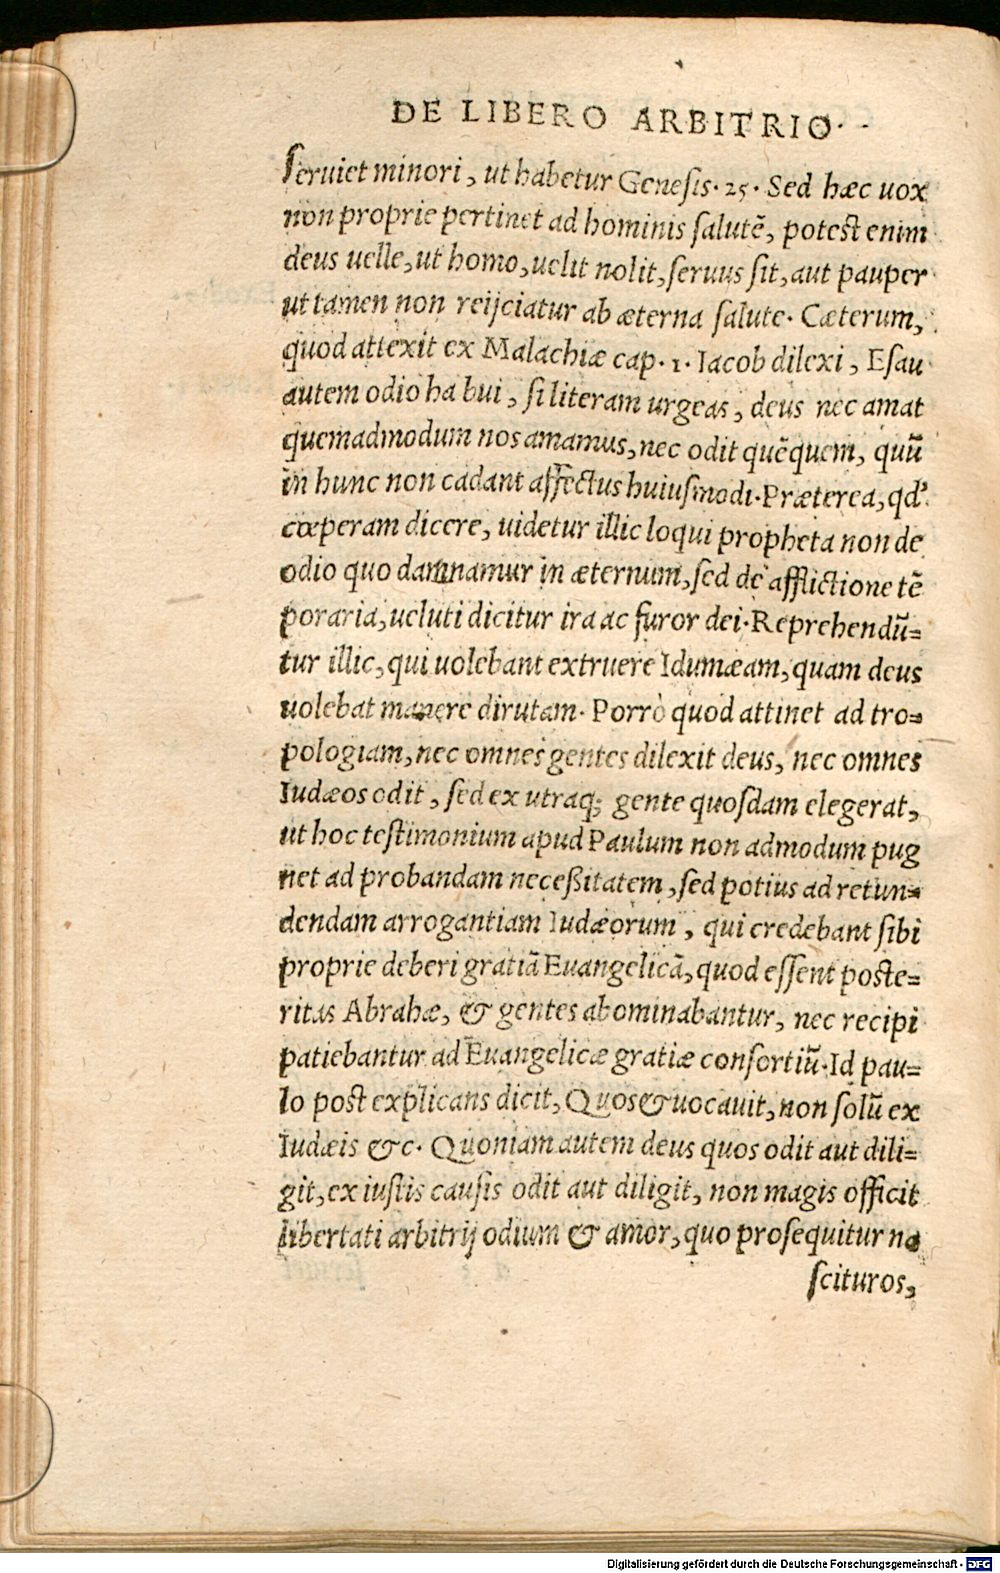 DE LIBERO ARBITRIO.
ſeruiet minori, ut habetur Geneſis. 25. Sed hæc uox
non proprie pertinet ad hominis ſalutē, poteſt enim
deus uelle, ut homo, uelit nolit, ſeruus ſit, aut pauper
ut tamen non reijciatur ab æterna ſalute. Cæterum,
quod attexit ex Malachiæ cap. 1. Iacob dilexi, Eſau
autem odio ha bui, ſi literam urgeas, deus nec amat
quemadmodum nos amamus, nec odit quēquem, quū
in hunc non cadant affectus huiuſmodi. Præterea, qđ
cœperam dicere, uidetur illic loqui propheta non de
odio quo damnamur in æternum, ſed de afflictione tē
poraria, ueluti dicitur ira ac furor dei. Reprehendū=
tur illic, qui uolebant extruere Idumæam, quam deus
uolebat manere dirutam. Porrò quod attinet ad tro=
pologiam, nec omnes gentes dilexit deus, nec omnes
Iudæos odit, ſed ex utraq; gente quoſdam elegerat,
ut hoc teſtimonium apud Paulum non admodum pug
net ad probandam neceßitatem, ſed potius ad retun=
dendam arrogantiam Iudæorum, qui credebant ſibi
proprie deberi gratiā Euangelicā, quod eſſent poſte=
ritas Abrahæ, & gentes abominabantur, nec recipi
patiebantur ad Euangelicæ gratiæ conſortiū. Id pau=
lo poſt explicans dicit, Quos & uocauit, non ſolū ex
Iudæis &c. Quoniam autem deus quos odit aut dili=
git, ex iuſtis cauſis odit aut diligit, non magis officit
libertati arbitrij odium & amor, quo proſequitur na
ſcituros,
Digitalisierung gefördert durch die Deutsche Forschungsgemeinschaft - DFG